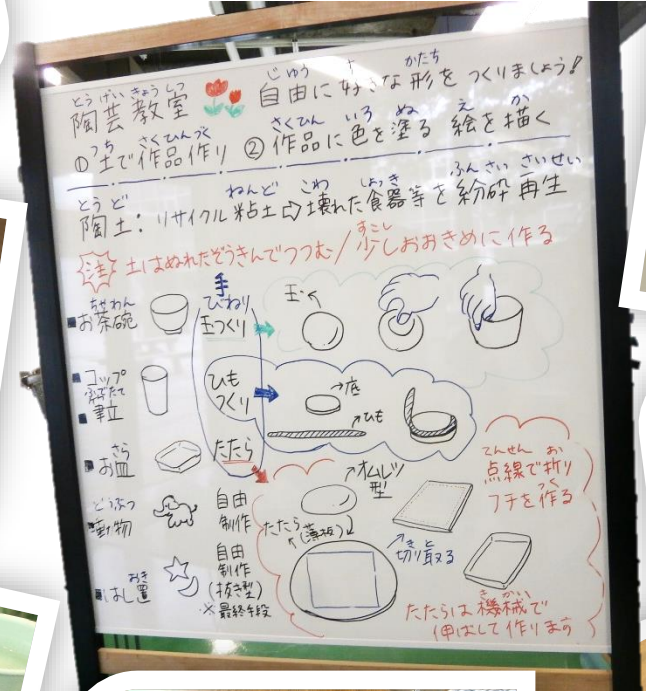 とうげいきょうしつ
陶芸教室
じゆう す かたち
自由に好きな形をつくりましょう!
つち さくひんつく
①土で作品作り
さくひん いろ ぬ え か
②作品に色を塗る 絵を描く
とうど ねんど こわ しょっき ふんさい さいせい
陶土:リサイクル粘土⇨壊れた食器等を紛砕再生
注 土はぬれたぞうきんでつつむ/少しおおきめに作る
すこし
ちゃわん
お茶碗
コップ
ふでたて
筆立
さら
お皿
どうぶつ
動物
おき
はし置
手
びねり
玉つくり
ひも
つくり
たたら
自由
制作
自由
制作
(抜き型)
※最終手段
玉
→底
ひも
オムレツ
型
たたら
(薄板)
切り取る
き と
てんせん お
点線で折り
つく
フチを作る
きかい
たたらは機械で
の
伸ばして作ります